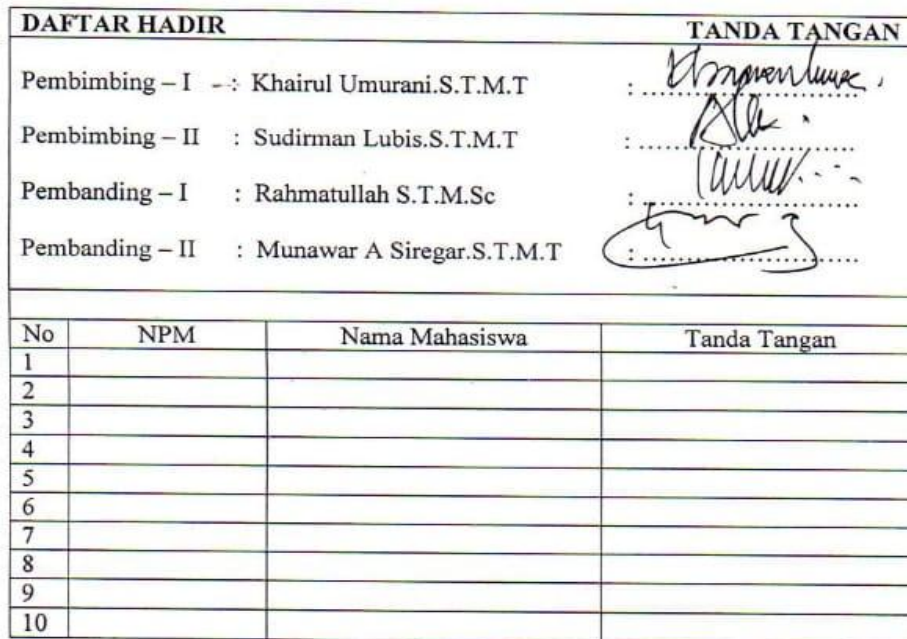 DAFTAR HADIR TANDA TANGAN
Pembimbing – I : Khairul Umurani.S.T.M.T : ..............................
Pembimbing – II : Sudirman Lubis.S.T.M.T : ..............................
Pembanding – I : Rahmatullah S.T.M.Sc : ..............................
Pembanding – II : Munawar A Siregar.S.T.M.T : ..............................
No NPM Nama Mahasiswa Tanda Tangan
1
2
3
4
5
6
7
8
9
10